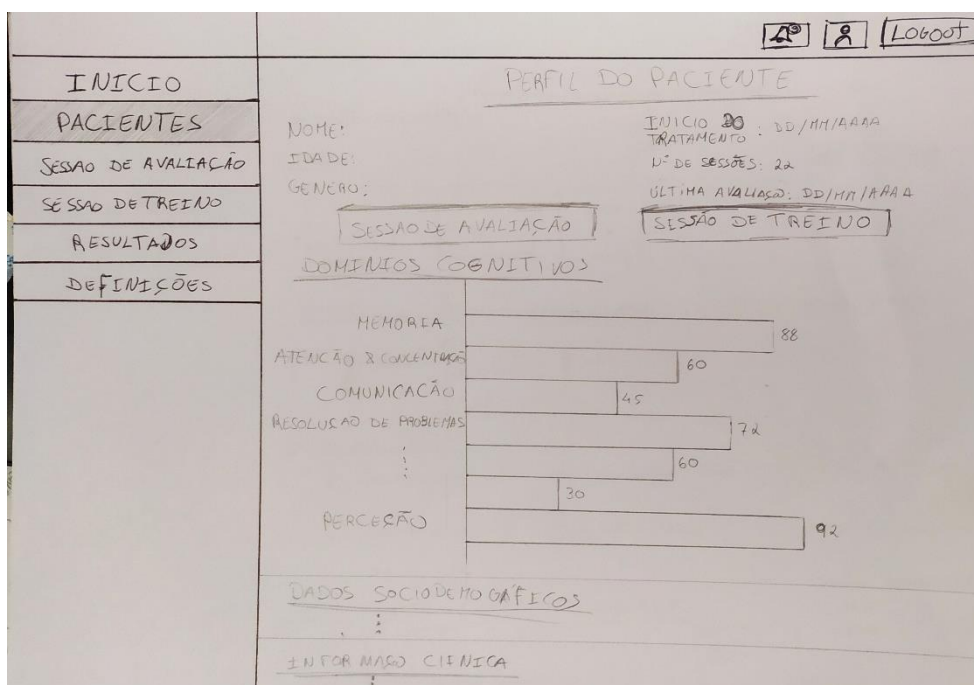 LOGOUT
INICIO
PACIENTES
SESSAO DE AVALIAÇÃO
SESSAO DE TREINO
RESULTADOS
DEFINIÇÕES
PERFIL DO PACIENTE
NOME:
IDADE:
GENERO:
INICIO DO
TRATAMENTO : DD/MM/AAAA
Nº DE SESSÕES: 22
ÚLTIMA AVALIAÇÃO: DD/MM/AAAA
SESSAO DE AVALIAÇÃO
SESSÃO DE TREINO
DOMINIOS COGNITIVOS
MEMORIA 88
ATENÇÃO & CONCENTRAÇÃO 60
COMUNICAÇÃO 45
RESOLUÇAO DE PROBLEMAS 72
60
30
PERCEÇÃO 92
DADOS SOCIODEMOGÁFICOS
INFORMAÇO CLINICA